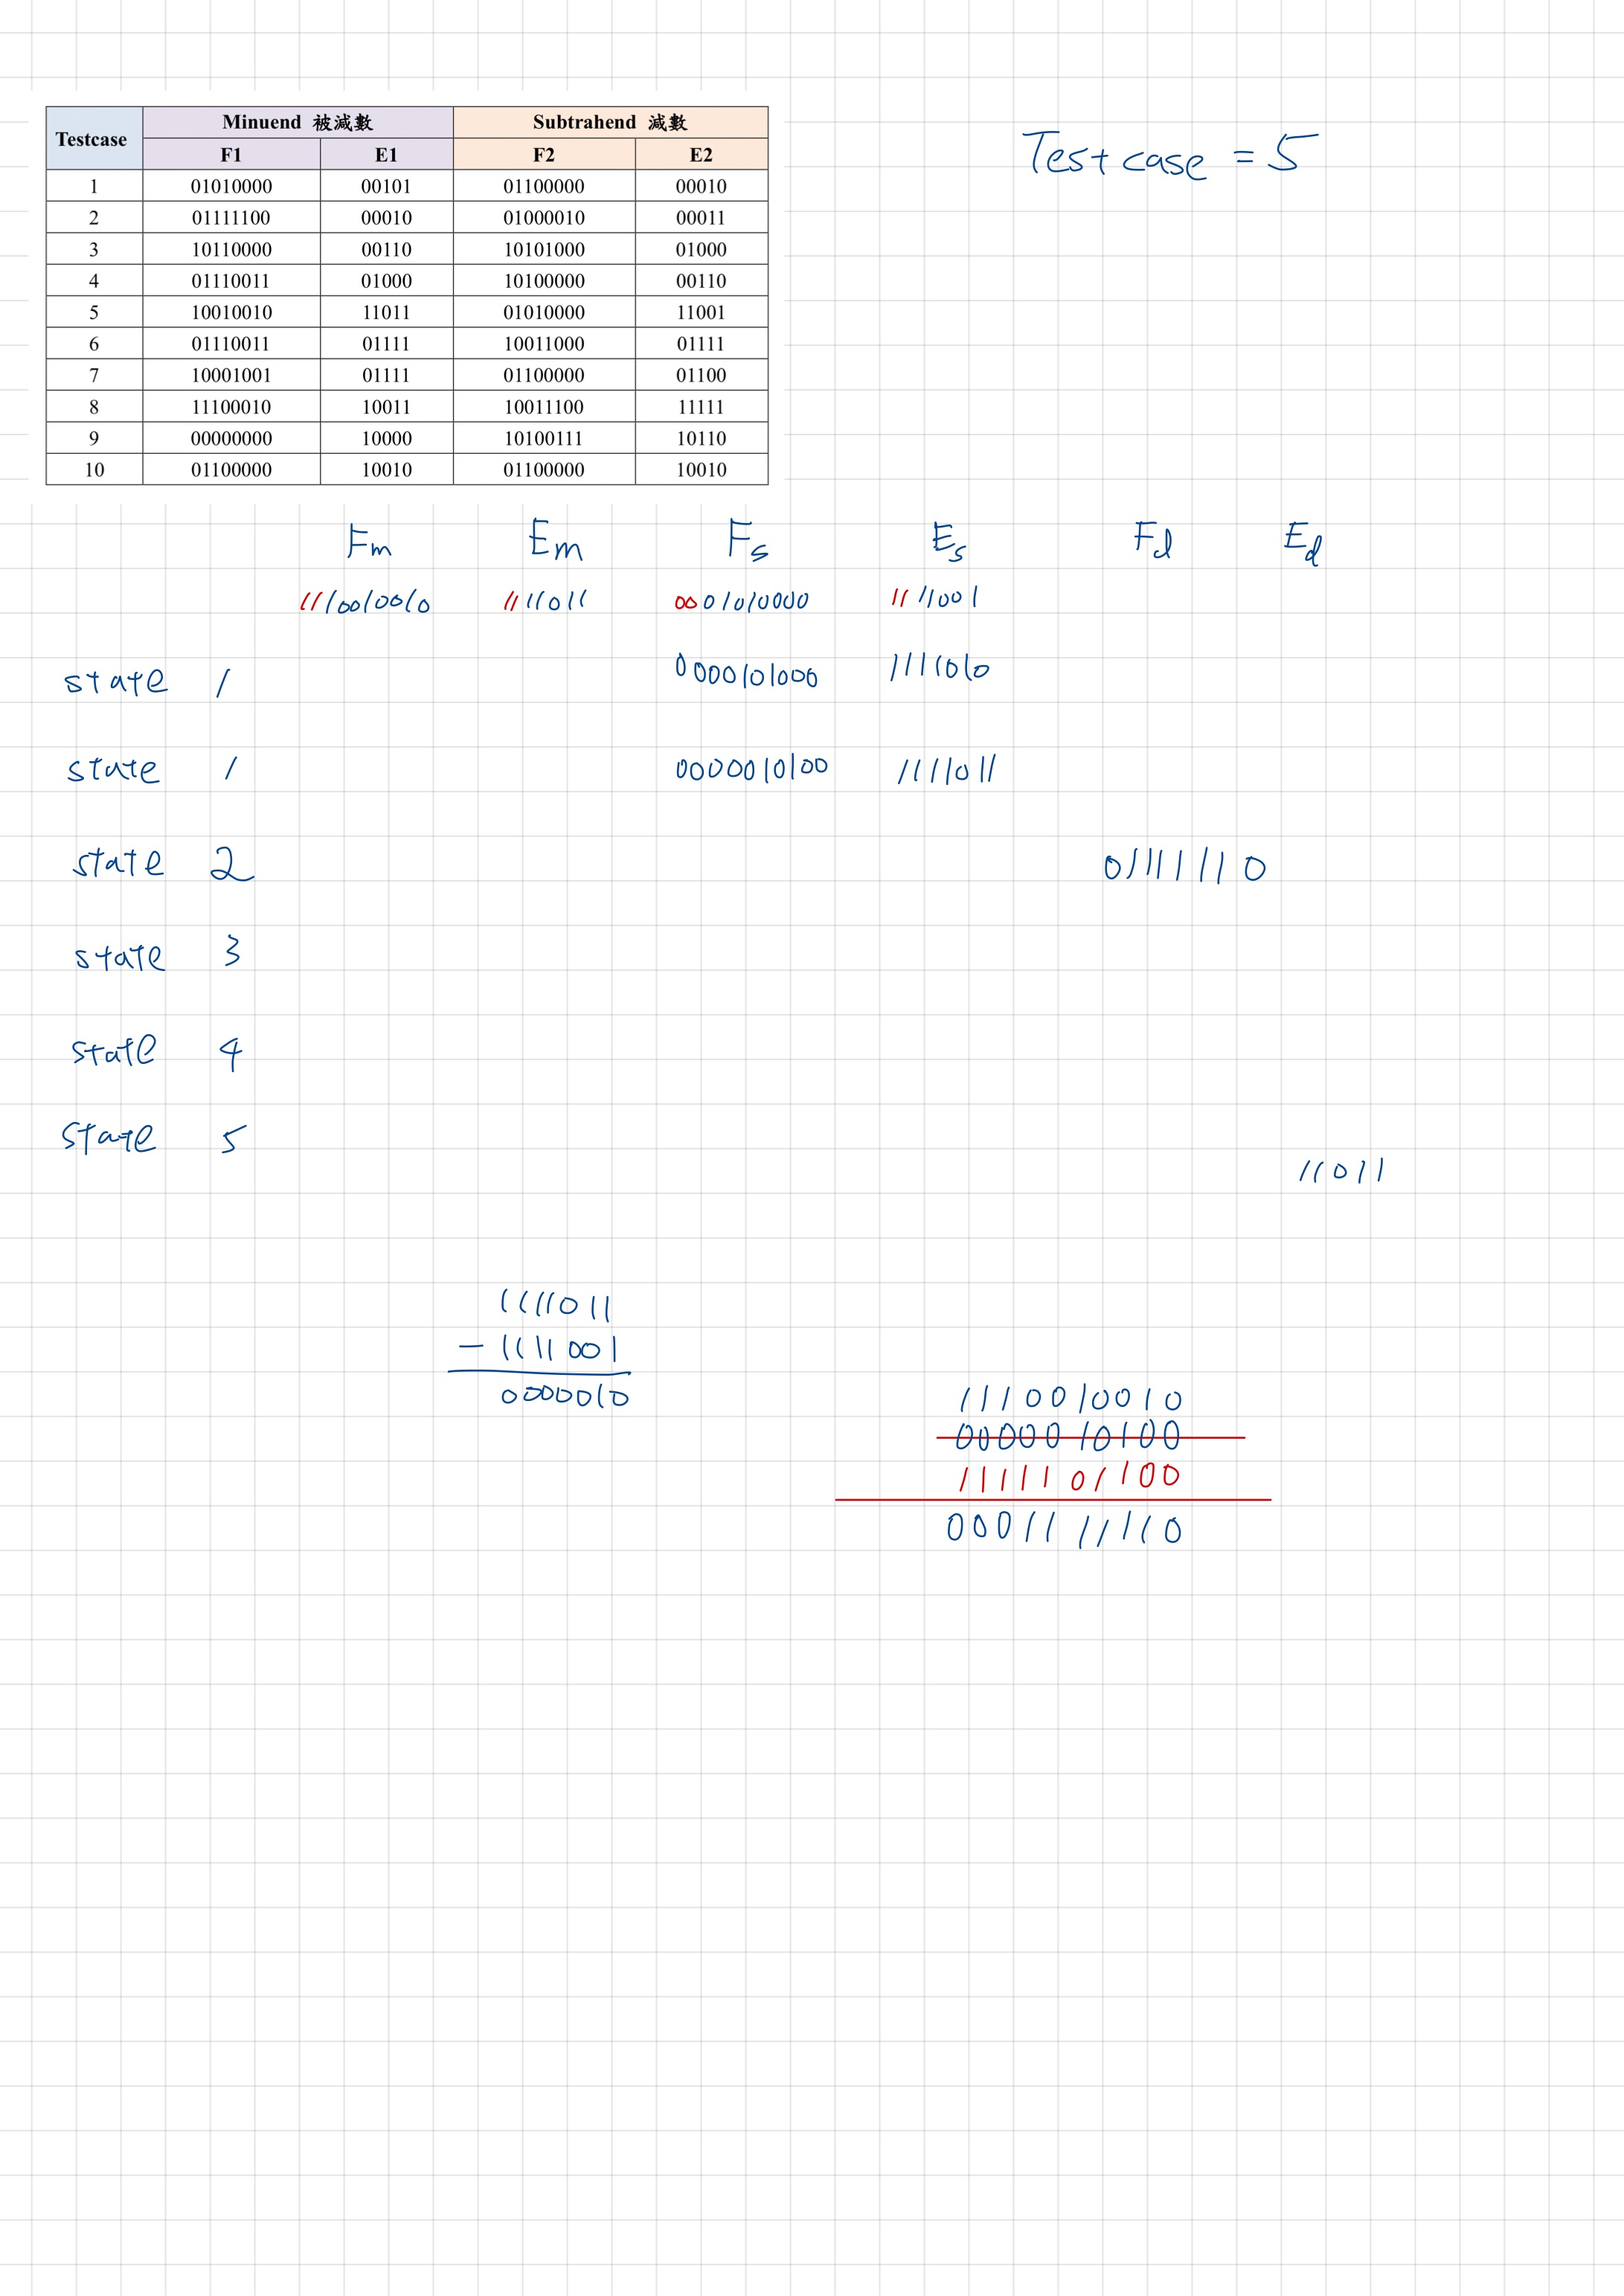 Testcase Minuend 被減數 Subtrahend 減數
F1 E1 F2 E2
1 01010000 00101 01100000 00010
2 01111100 00010 01000010 00011
3 10110000 00110 10101000 01000
4 01110011 01000 10100000 00110
5 10010010 11011 01010000 11001
6 01110011 01111 10011000 01111
7 10001001 01111 01100000 01100
8 11100010 10011 10011100 11111
9 00000000 10000 10100111 10110
10 01100000 10010 01100000 10010
Test case = 5
Fm Em Fs Es Fd Ed
1110010010 1111011 0001010000 1111001
state 1 0000101000 1111010
state 1 0000010100 1111011
state 2 01111110
state 3
state 4
state 5
11011
1111011
- 1111001
0000010
1110010010
0000010100
1111101100
0001111110